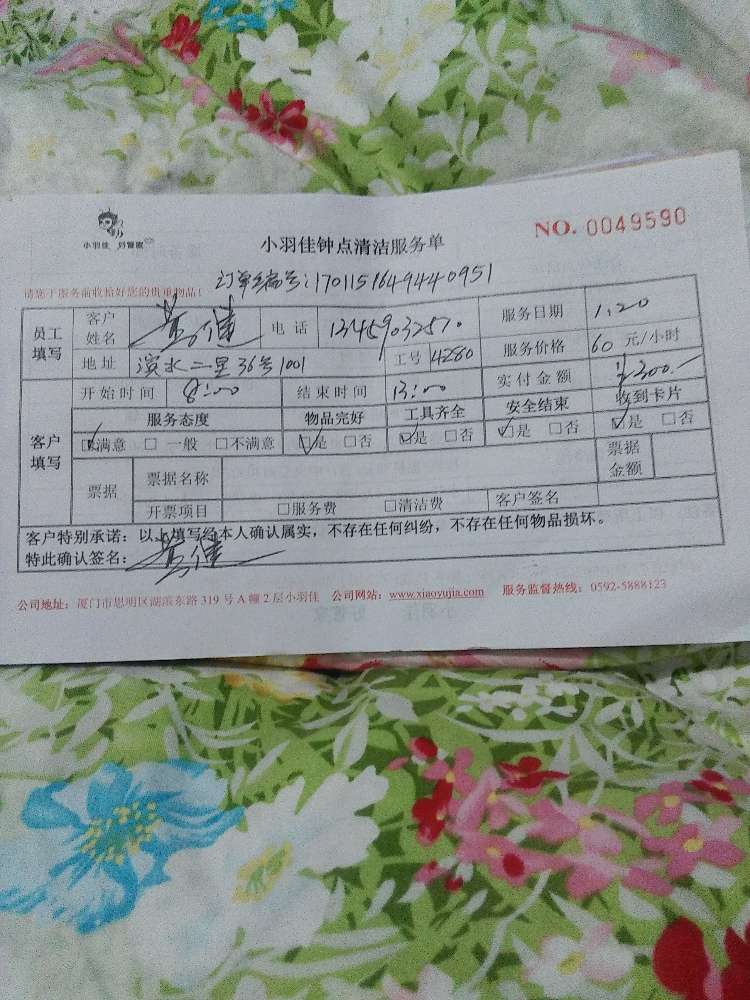 小羽佳 好管家
小羽佳钟点清洁服务单
NO. 0049590
订单编号:1701151649440951
请您于服务前收拾好您的贵重物品!
员工填写 客户姓名 电话 13459032570 服务日期 1.20
地址 滨水二里36号1001 工号 4280 服务价格 60 元/小时
客户填写 开始时间 8:00 结束时间 13:00 实付金额 ¥300.-
服务态度 物品完好 工具齐全 安全结束 收到卡片
☑满意 □一般 □不满意 ☑是 □否 ☑是 □否 ☑是 □否 ☑是 □否
票据 票据名称 票据金额
开票项目 □服务费 □清洁费 客户签名
客户特别承诺:以上填写经本人确认属实,不存在任何纠纷,不存在任何物品损坏。
特此确认签名:
公司地址:厦门市思明区湖滨东路319号A幢2层小羽佳 公司网站:www.xiaoyujia.com 服务监督热线:0592-5888123